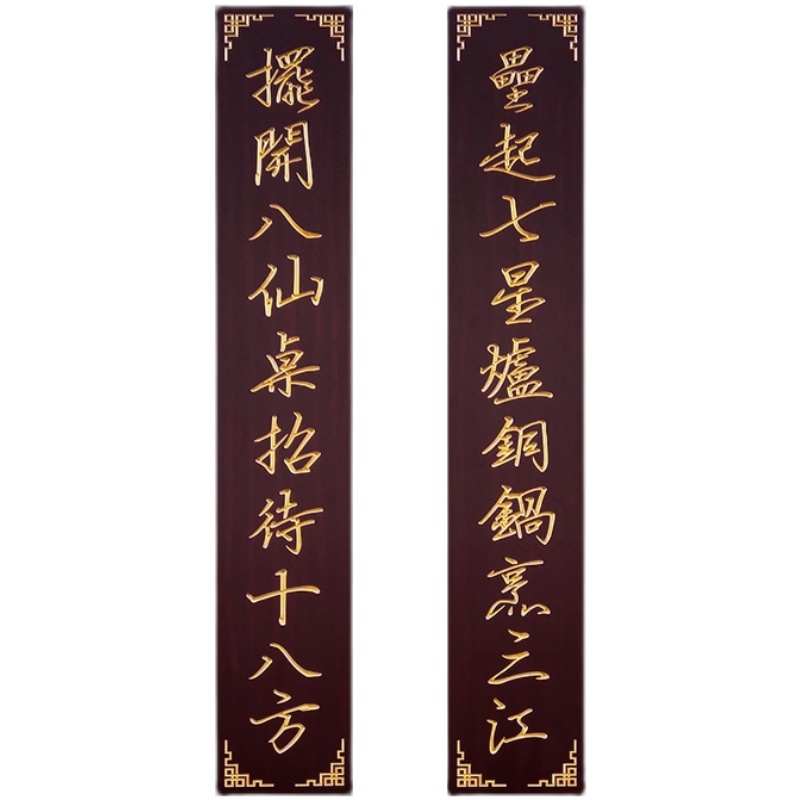 壘起七星爐銅鍋烹三江
擺開八仙桌招待十八方